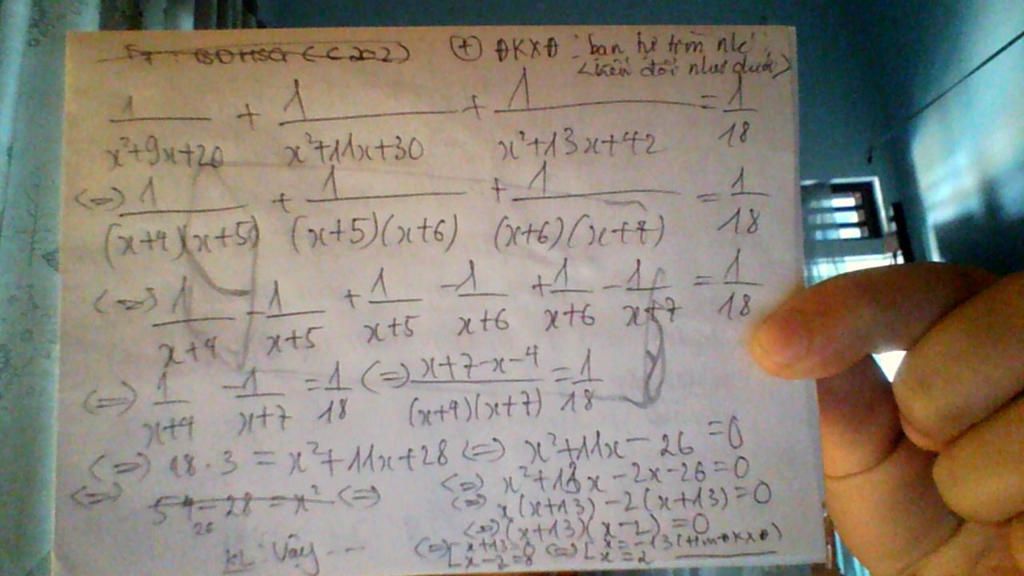 (+) ĐKXĐ: bạn tự tìm nhé
<biến đổi như dưới>
1/(x²+9x+20) + 1/(x²+11x+30) + 1/(x²+13x+42) = 1/18
<=> 1/((x+4)(x+5)) + 1/((x+5)(x+6)) + 1/((x+6)(x+7)) = 1/18
<=> 1/(x+4) - 1/(x+5) + 1/(x+5) - 1/(x+6) + 1/(x+6) - 1/(x+7) = 1/18
<=> 1/(x+4) - 1/(x+7) = 1/18 <=> (x+7-x-4)/((x+4)(x+7)) = 1/18
<=> 18.3 = x²+11x+28 <=> x²+11x-26 = 0
<=> x²+13x-2x-26=0
<=> 54-28 = x² <=>
26
<=> x(x+13)-2(x+13)=0
<=> (x+13)(x-2)=0
KL: Vậy ...
<=> [x+13=0 <=> [x=-13 (t/m ĐKXĐ)
x-2=0 x=2